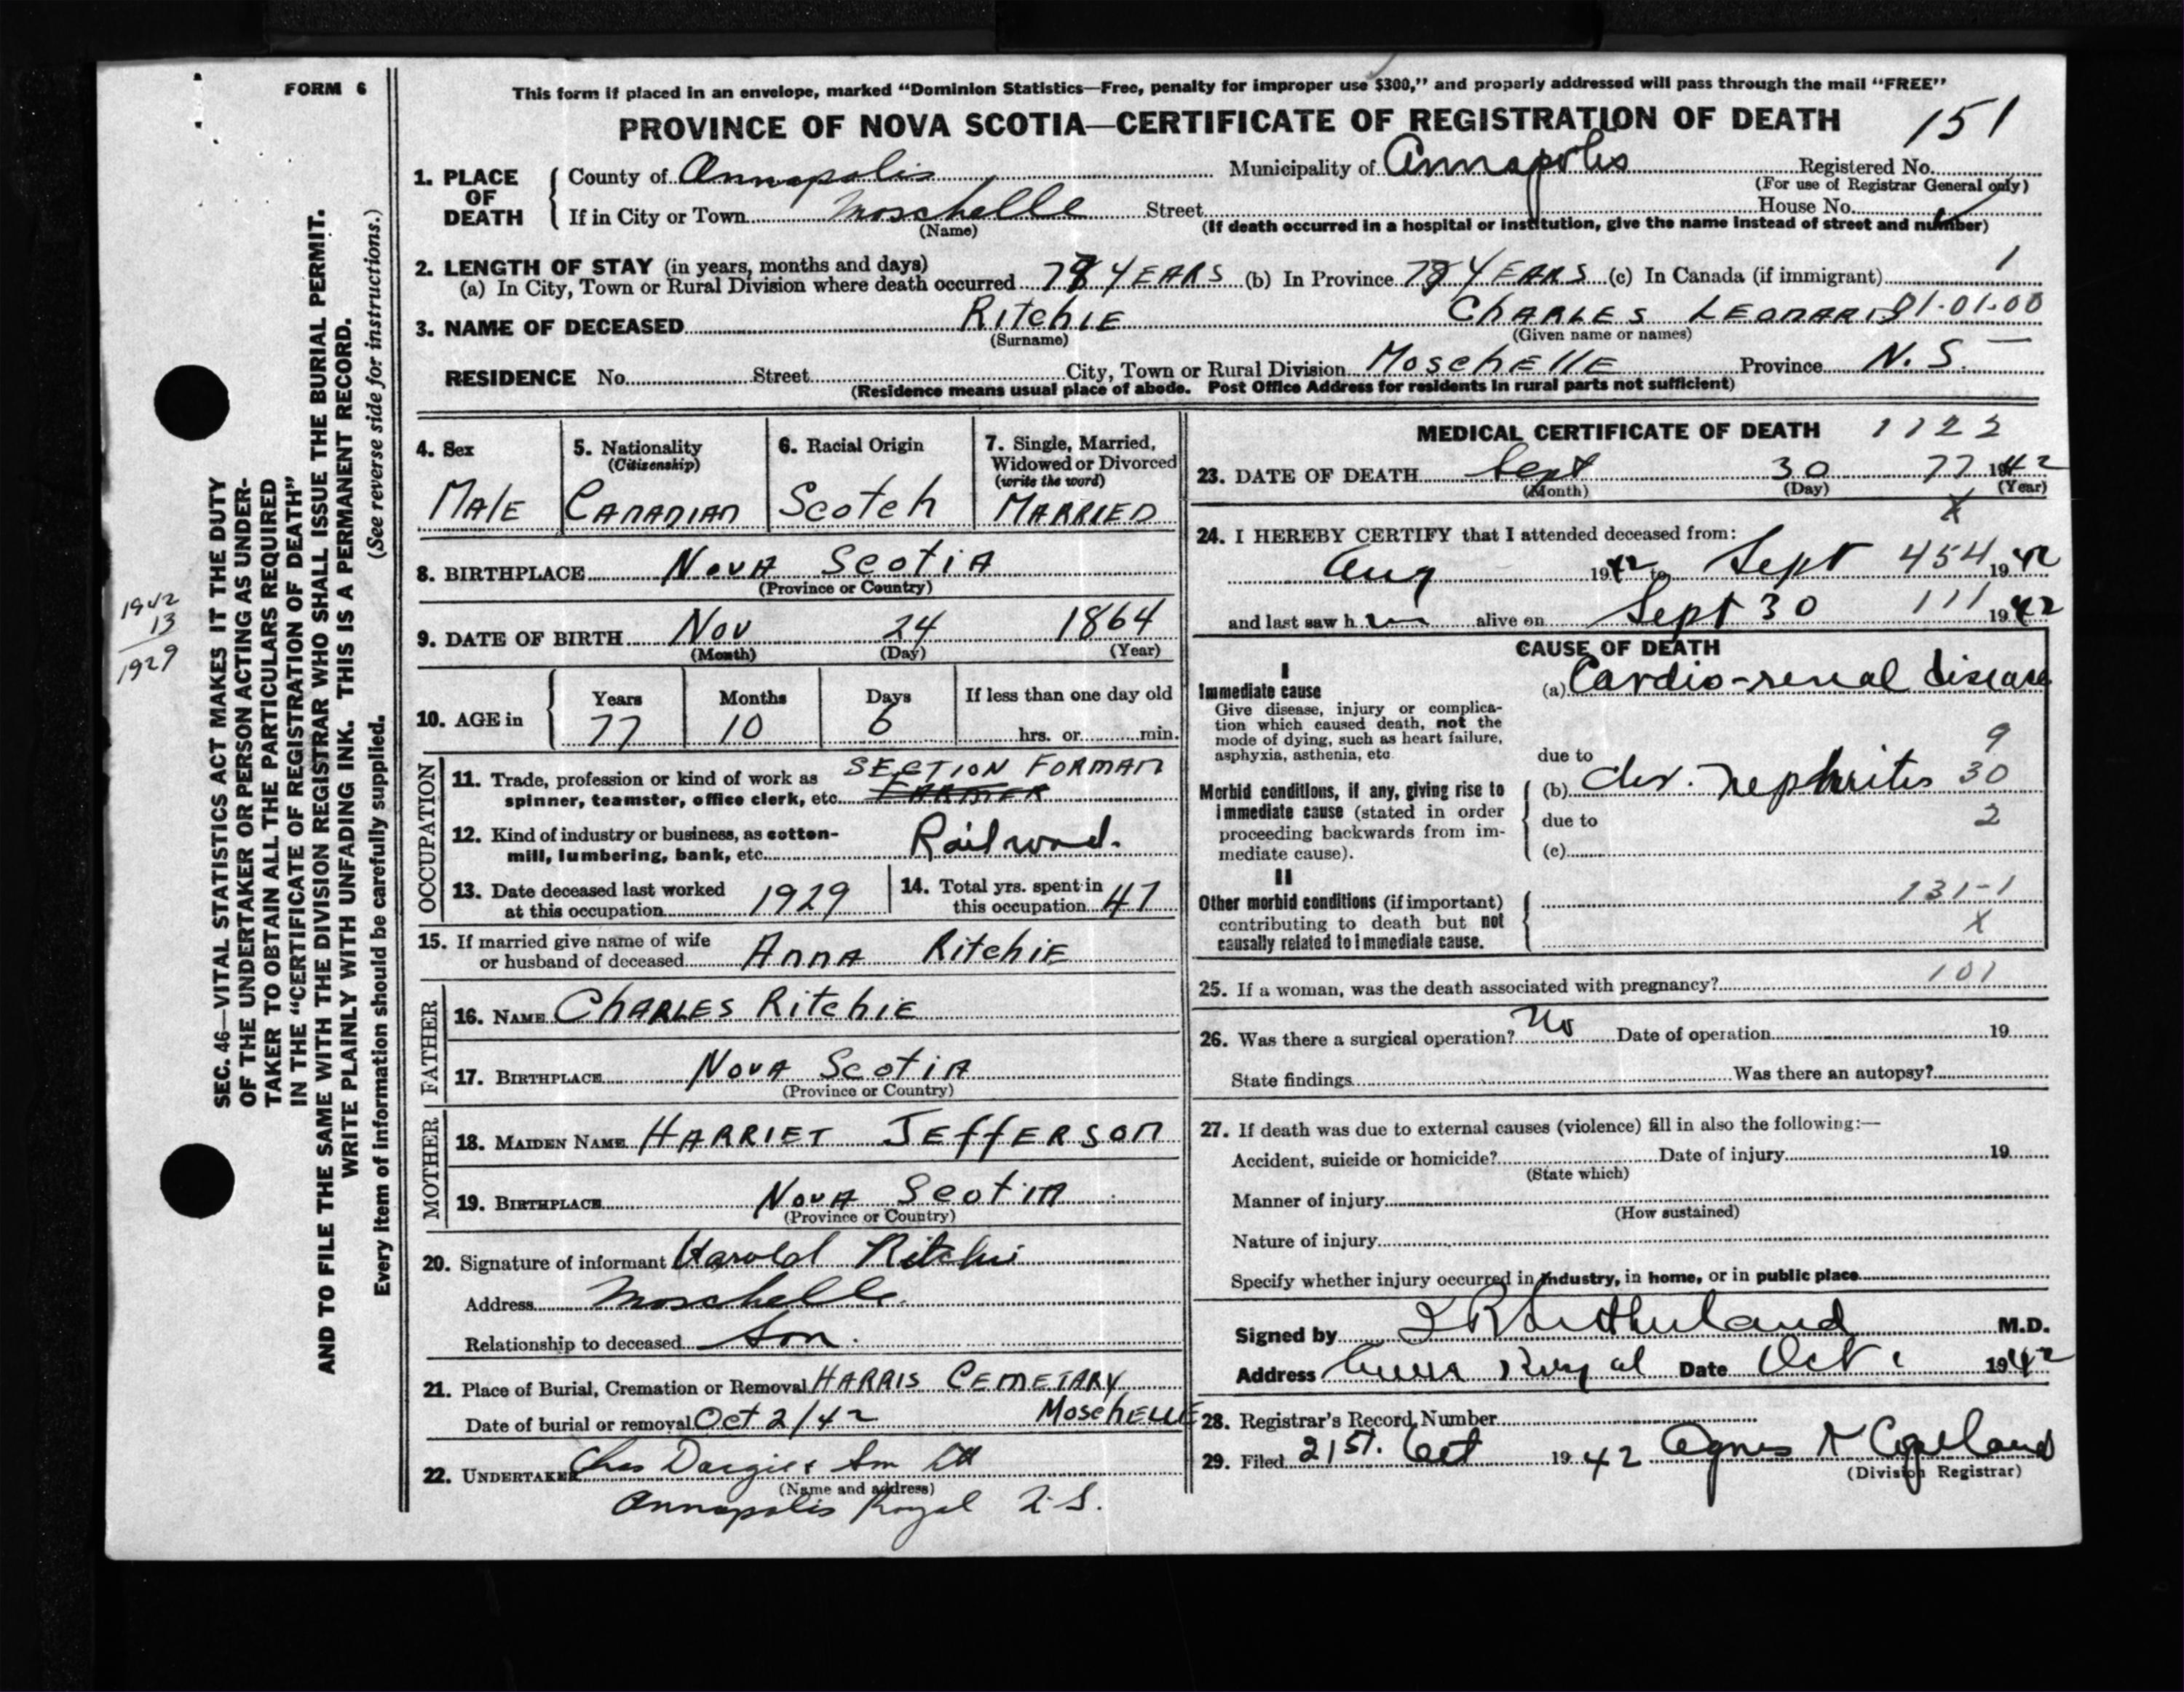 FORM 6
This form if placed in an envelope, marked "Dominion Statistics—Free, penalty for improper use $300," and properly addressed will pass through the mail "FREE"
PROVINCE OF NOVA SCOTIA—CERTIFICATE OF REGISTRATION OF DEATH
151
1. PLACE OF DEATH
County of Annapolis Municipality of Annapolis Registered No.
(For use of Registrar General only)
If in City or Town Moschelle Street House No.
(Name) (If death occurred in a hospital or institution, give the name instead of street and number)
2. LENGTH OF STAY (in years, months and days) 1
(a) In City, Town or Rural Division where death occurred YEARS (b) In Province YEARS (c) In Canada (if immigrant)
3. NAME OF DECEASED RITCHIE CHARLES LEONARD 01-01-00
(Surname) (Given name or names)
RESIDENCE No. Street City, Town or Rural Division MOSCHELLE Province N.S.
(Residence means usual place of abode. Post Office Address for residents in rural parts not sufficient)
4. Sex
MALE
5. Nationality
(Citizenship)
CANADIAN
6. Racial Origin
Scotch
7. Single, Married,
Widowed or Divorced
(write the word)
MARRIED
8. BIRTHPLACE NOVA SCOTIA
(Province or Country)
9. DATE OF BIRTH NOV 24 1864
(Month) (Day) (Year)
10. AGE in
Years Months Days If less than one day old
77 10 6 hrs. or min.
OCCUPATION
11. Trade, profession or kind of work as SECTION FORMAN
spinner, teamster, office clerk, etc. FARMER
12. Kind of industry or business, as cotton-
mill, lumbering, bank, etc. Railroad.
13. Date deceased last worked
at this occupation 1929
14. Total yrs. spent in
this occupation 47
15. If married give name of wife
or husband of deceased ANNA RITCHIE
FATHER
16. NAME CHARLES RITCHIE
17. BIRTHPLACE NOVA SCOTIA
(Province or Country)
MOTHER
18. MAIDEN NAME HARRIET JEFFERSON
19. BIRTHPLACE NOVA SCOTIA
(Province or Country)
20. Signature of informant Harold Ritchie
Address Moschelle
Relationship to deceased Son.
21. Place of Burial, Cremation or Removal HARRIS CEMETARY
Date of burial or removal Oct 2/42 MOSCHELLE
22. UNDERTAKER Chas Dargie & Son Ltd
(Name and address)
Annapolis Royal N.S.
MEDICAL CERTIFICATE OF DEATH 1122
23. DATE OF DEATH Sept 30 77 1942
(Month) (Day) (Year)
X
24. I HEREBY CERTIFY that I attended deceased from:
Aug 1942 to Sept 454 1942
and last saw h im alive on Sept 30 111 1942
CAUSE OF DEATH
I
Immediate cause
Give disease, injury or complica-
tion which caused death, not the
mode of dying, such as heart failure,
asphyxia, asthenia, etc
(a) Cardio-renal disease
9
due to
Morbid conditions, if any, giving rise to
immediate cause (stated in order
proceeding backwards from im-
mediate cause).
(b) chr. nephritis 30
due to 2
(c)
II
Other morbid conditions (if important)
contributing to death but not
causally related to immediate cause.
131-1
X
101
25. If a woman, was the death associated with pregnancy?
26. Was there a surgical operation? No Date of operation 19
State findings Was there an autopsy?
27. If death was due to external causes (violence) fill in also the following:—
Accident, suicide or homicide? Date of injury 19
(State which)
Manner of injury
(How sustained)
Nature of injury
Specify whether injury occurred in industry, in home, or in public place
Signed by Sutherland M.D.
Address Anna Royal Date Oct 1 1942
28. Registrar's Record Number
29. Filed 21st. Oct 1942 Agnes Copeland
(Division Registrar)
SEC. 46—VITAL STATISTICS ACT MAKES IT THE DUTY
OF THE UNDERTAKER OR PERSON ACTING AS UNDER-
TAKER TO OBTAIN ALL THE PARTICULARS REQUIRED
IN THE "CERTIFICATE OF REGISTRATION OF DEATH"
AND TO FILE THE SAME WITH THE DIVISION REGISTRAR WHO SHALL ISSUE THE BURIAL PERMIT.
WRITE PLAINLY WITH UNFADING INK. THIS IS A PERMANENT RECORD.
Every item of information should be carefully supplied. (See reverse side for instructions.)
1942
13
1929